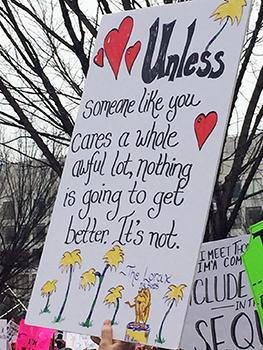 Unless
someone like you
cares a whole
awful lot, nothing
is going to get
better. It's not.
The Lorax
I MEET THO
I'M A COM
CLUDE
IN THE
SEQU